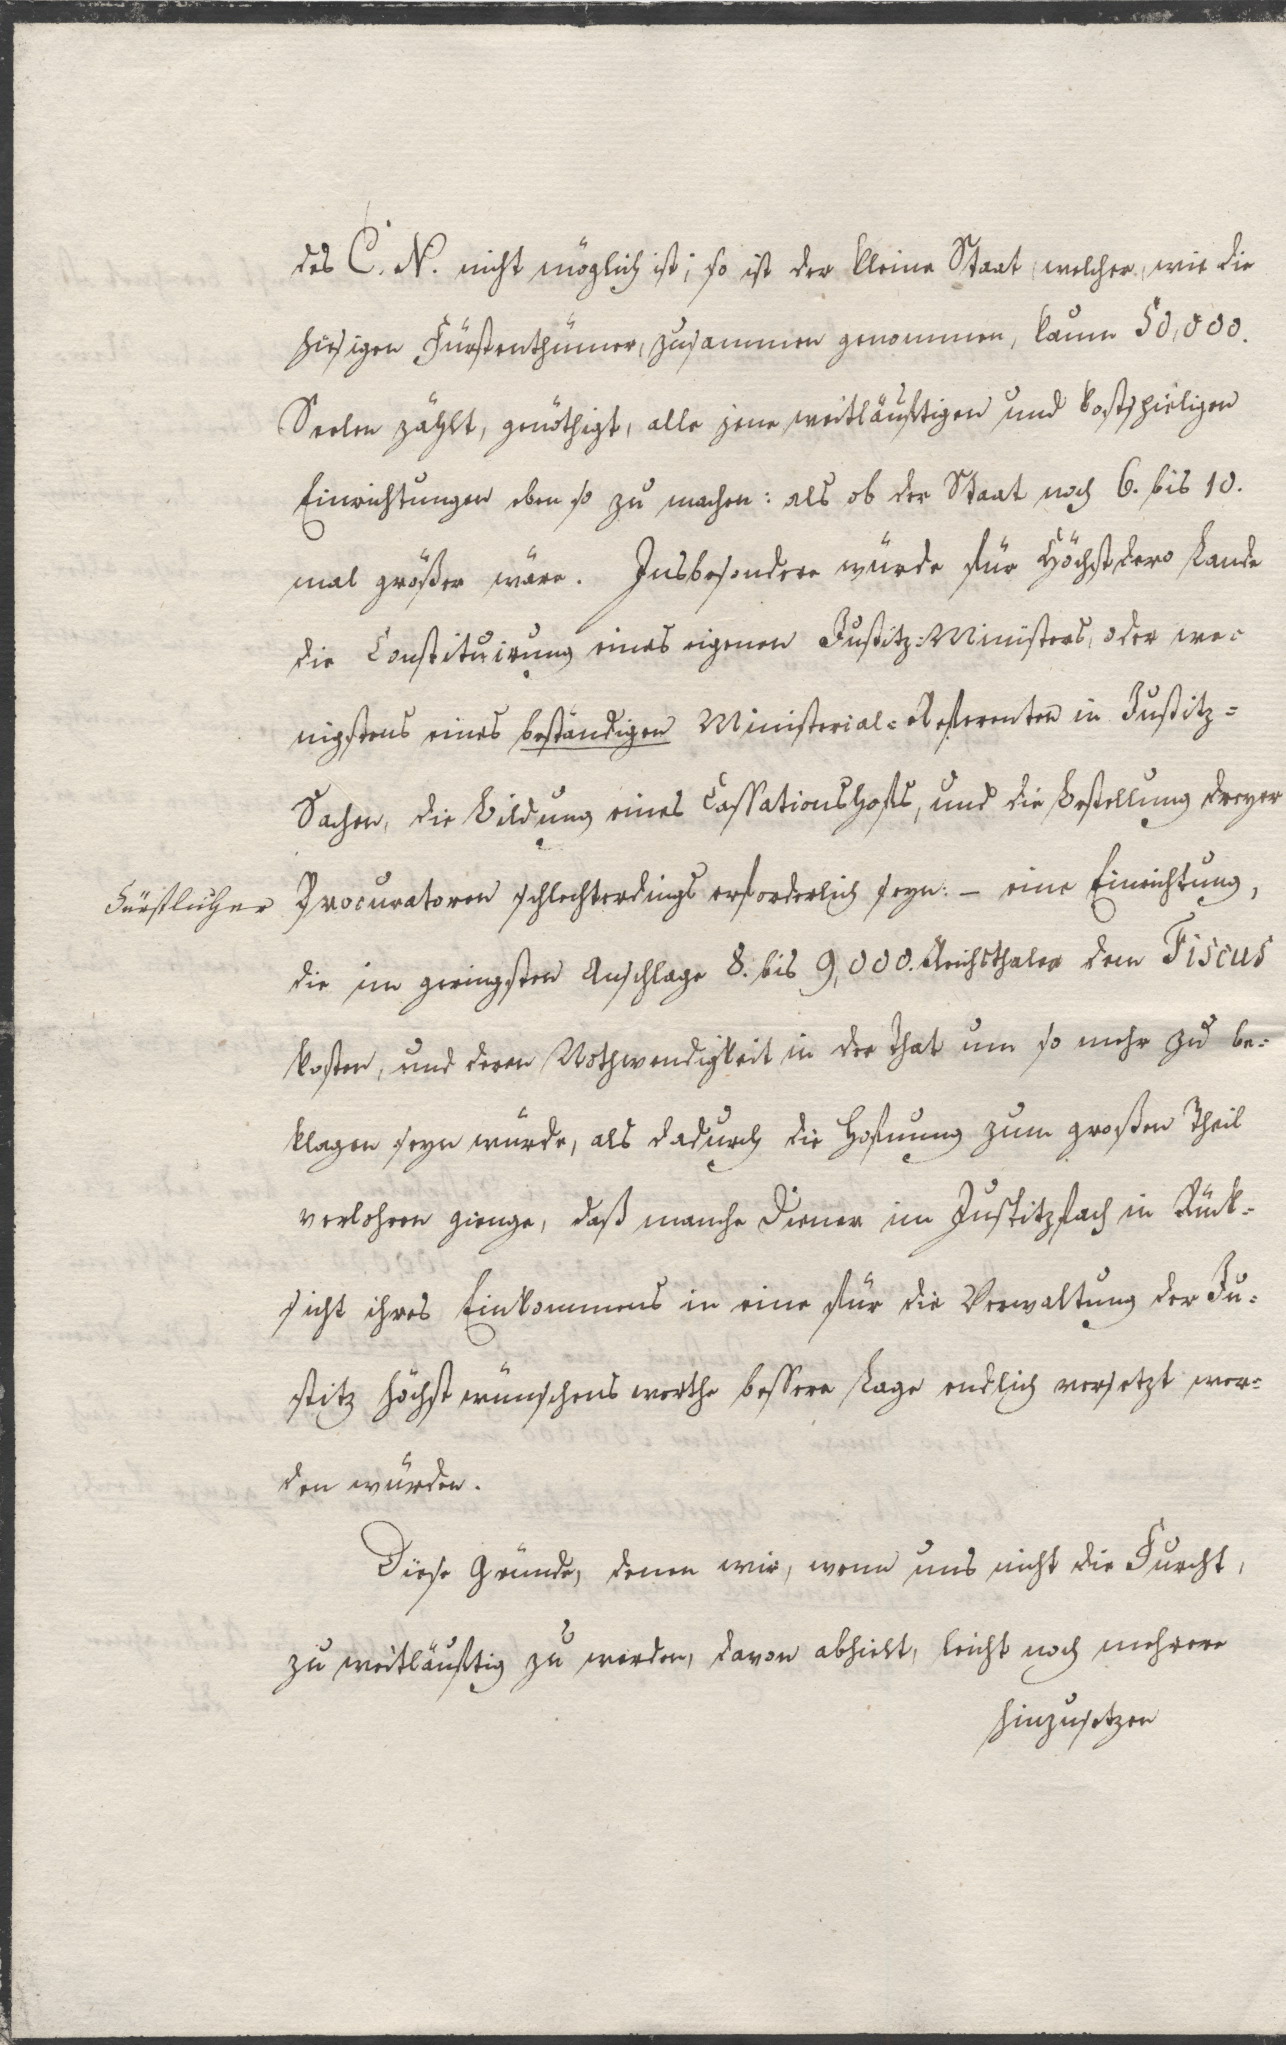 des C. N. nicht möglich ist; so ist der kleine Staat, welcher, wie die
hiesigen Fürstenthümer, zusammen genommen, kaum 50,000.
Seelen zählt, genöthigt, alle jene weitläuftigen und kostspieligen
Einrichtungen eben so zu machen: als ob der Staat noch 6. bis 10.
mal größer wäre. Insbesondere würde für Höchstdero Lande
die Constituirung eines eigenen Justitz-Ministers, oder we-
nigstens eines beständigen Ministerial-Referenten in Justitz-
Sachen, die Bildung eines Cassationshofs, und die Bestellung dreyer
Fürstlicher Procuratoren schlechterdings erforderlich seyn: – eine Einrichtung,
die im geringsten Anschlage 8. bis 9,000. Reichsthaler dem Fiscus
kosten, und deren Nothwendigkeit in der That um so mehr zu be-
klagen seyn würde, als dadurch die Hofnung zum großen Theil
verlohren gienge, daß manche Diener im Justitzfach in Rück-
sicht ihres Einkommens in eine für die Verwaltung der Ju-
stitz höchst wünschenswerthe bessere Lage endlich versetzt wer-
den würden.
Diese Gründe, denen wir, wenn uns nicht die Furcht,
zu weitläuftig zu werden, davon abhielt, leicht noch mehrere
hinzusetzen